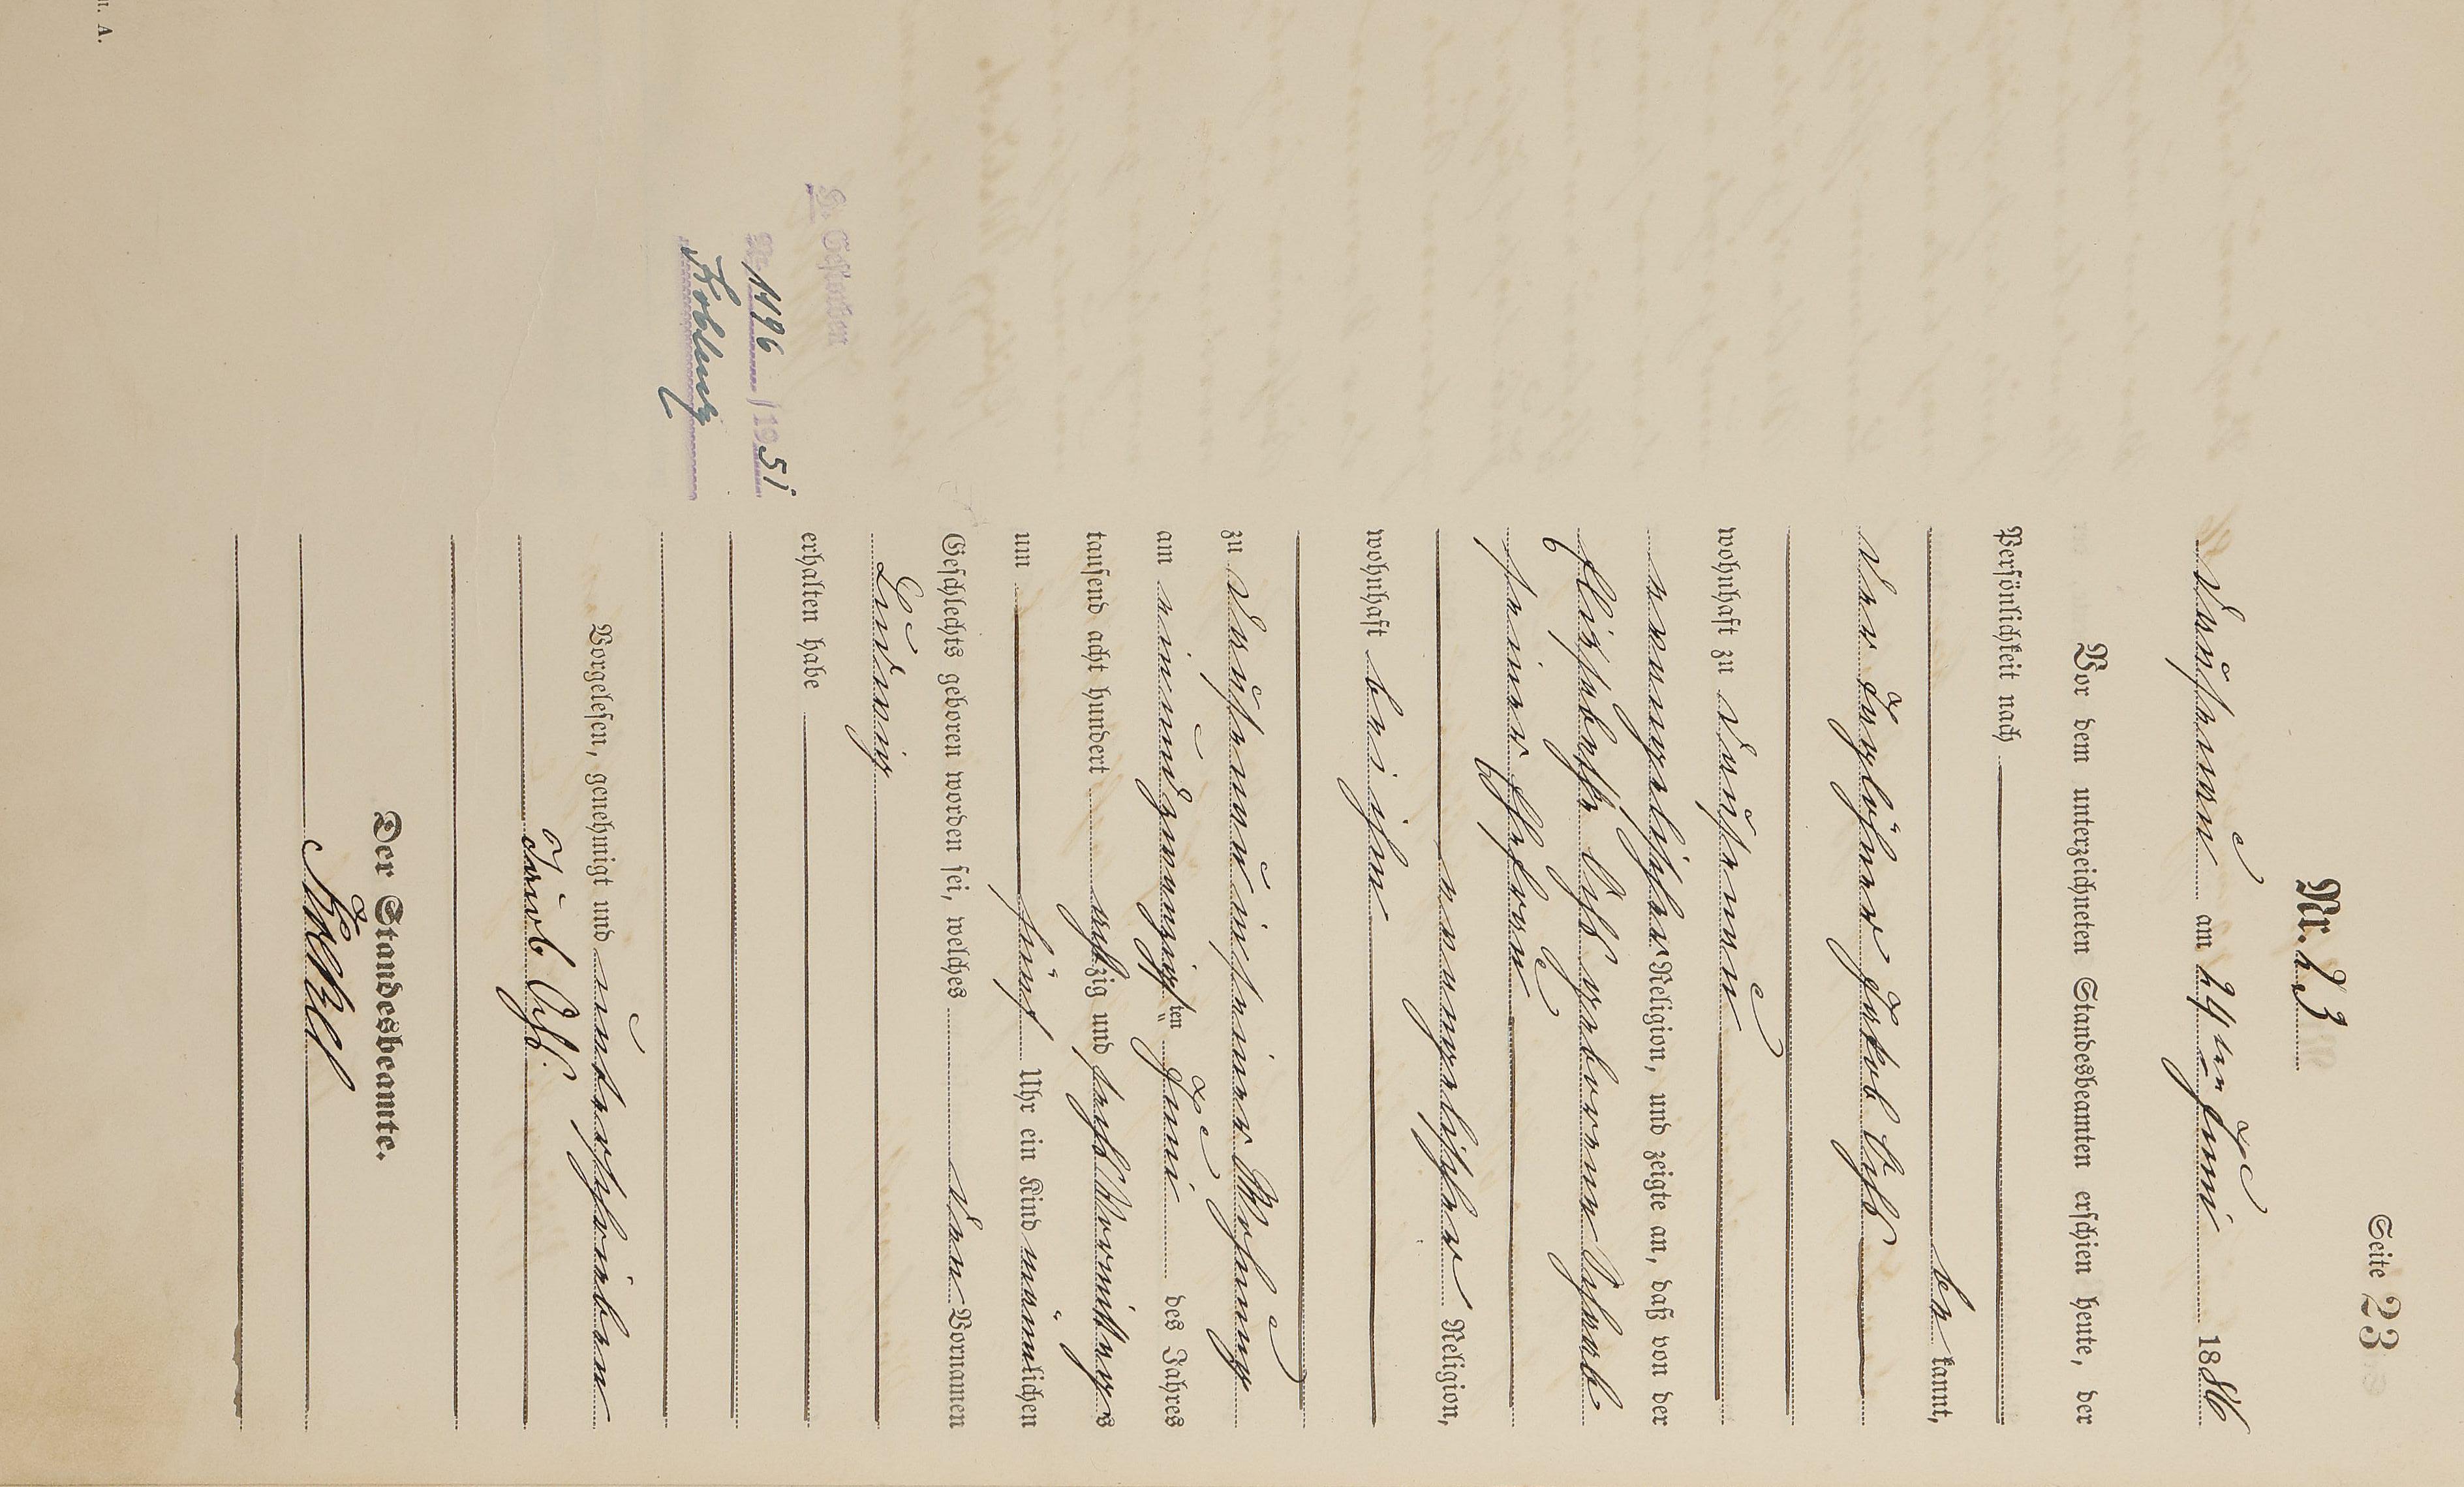 Seite 23
Nr. 23
Dausenau am 24ten Juni 1886
Vor dem unterzeichneten Standesbeamten erschien heute, der
Persönlichkeit nach
be kannt,
der Taglöhner Jakob Ochs
wohnhaft zu Dausenau
evangelischer Religion, und zeigte an, daß von der
Elisabethe Ochs geborenen Schwab
seiner Ehefrau
evangelischer Religion,
wohnhaft bei ihm
zu Dausenau in seiner Wohnung
am einundzwanzigsten Juni des Jahres
tausend acht hundert achtzig und sechs Vormittags
um fünf Uhr ein Kind männlichen
Geschlechts geboren worden sei, welches den Vornamen
Ludwig
erhalten habe
G. Gestorben
Nr. 1196 / 1951
Koblenz
Vorgelesen, genehmigt und unterschrieben
Jacob Ochs.
Der Standesbeamte.